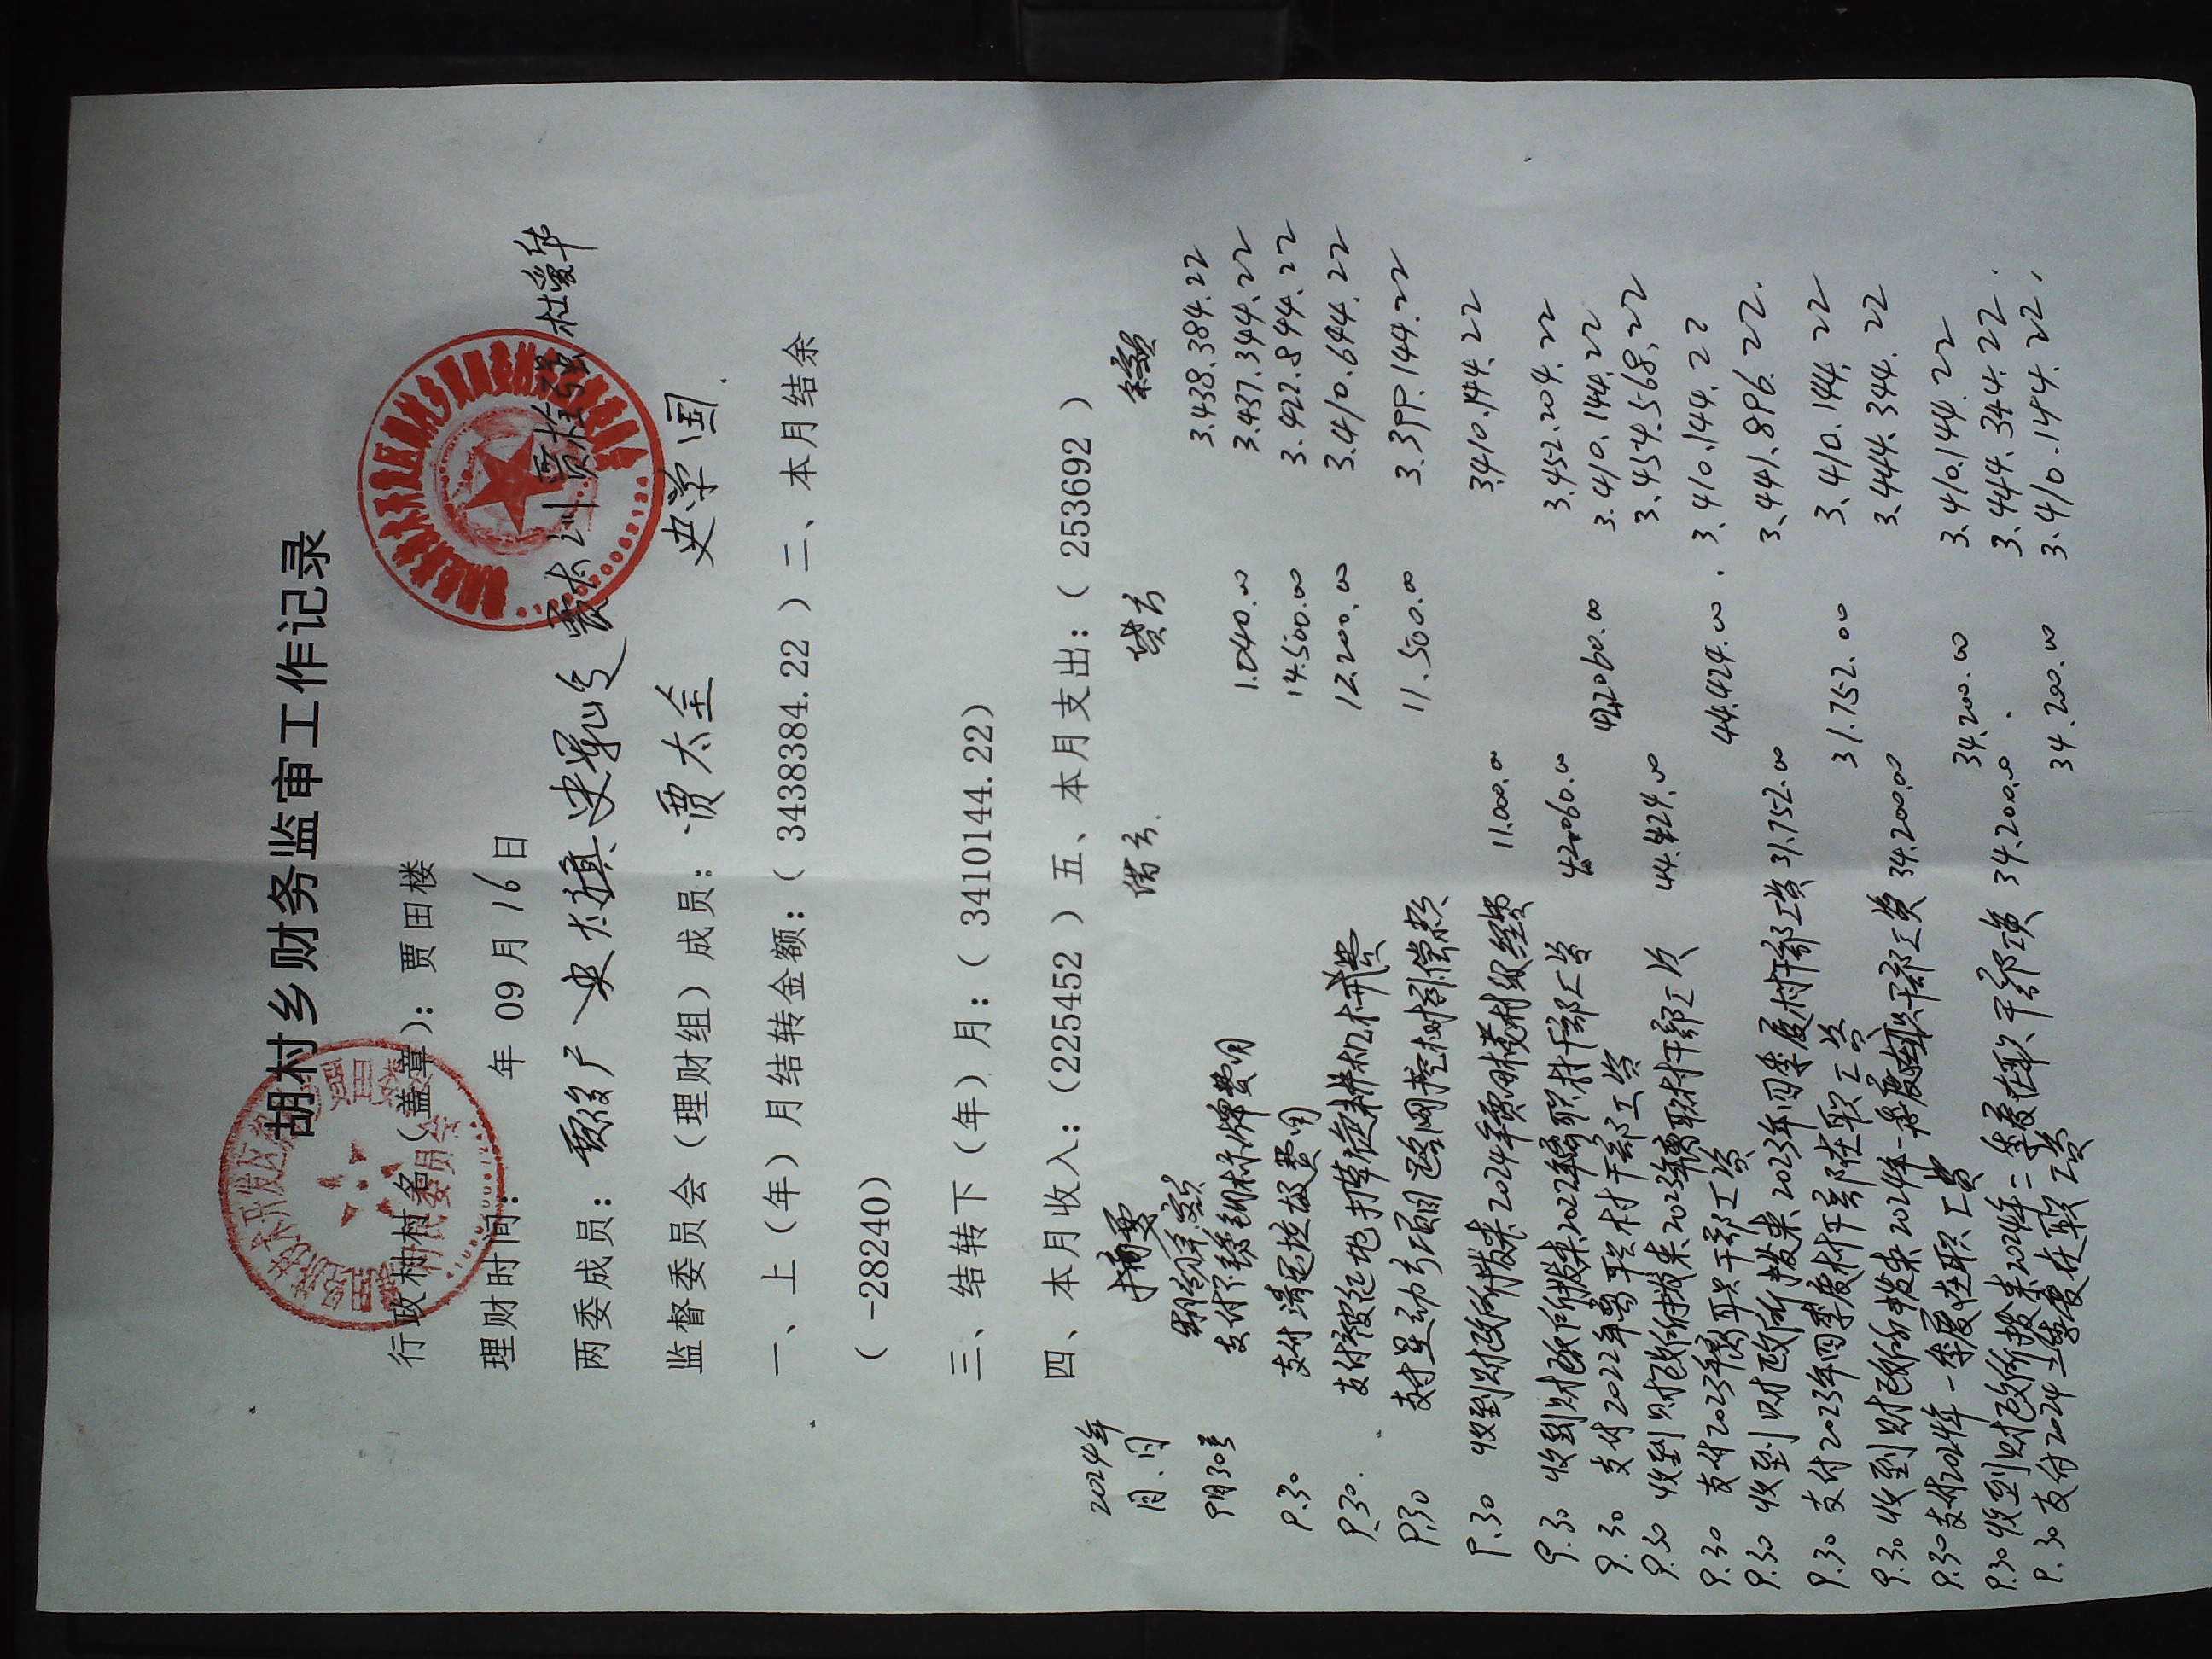 胡村乡财务监审工作记录
行政村村名(盖章): 贾田楼
理财时间: 年 09 月 16 日
两委成员:
监督委员会(理财组)成员: 贾太全 史学国
一、上(年)月结转金额:( 3438384.22 )二、本月结余
( -28240)
三、结转下(年)月:( 3410144.22)
四、本月收入:(225452 )五、本月支出:( 253692 )
2024年
月.日 摘要 借方 贷方 余额
3.438.384.22
9月30号 支付 牌费用 1.040.00 3.437.344.22
9.30 支付清运垃圾费用 14.500.00 3.422.844.22
9.30. 支付 地打草旋耕机械费 12.200.00 3.410.644.22
9.30 支付 项目 路网挖树补偿款 11.500.00 3.399.144.22
9.30 收到财政所拨来2024年 村级经费 11.000.00 3410.144.22
9.30 收到财政所拨来2022年离职村干部工资 42.060.00 3.452.204.22
9.30 支付2022年离职村干部工资 42.060.00 3.410.144.22
9.30 收到财政所拨来2023年离职村干部工资 44.424.00 3.454.568.22
9.30 支付2023年离职干部工资 44.424.00. 3.410.144.22
9.30 收到财政所拨来2023年四季度村干部工资 31.752.00 3.441.896.22.
9.30 支付2023年四季度村干部在职工资 31.752.00 3.410.144.22
9.30 收到财政所拨来2024年一季度在职干部工资 34.200.00 3.444.344.22
9.30 支付2024年一季度在职工资 34.200.00 3.410.144.22
9.30 收到财政所拨来2024年二季度在职干部工资 34.200.00. 3.444.344.22.
9.30 支付2024二季度在职工资 34.200.00 3.410.144.22.